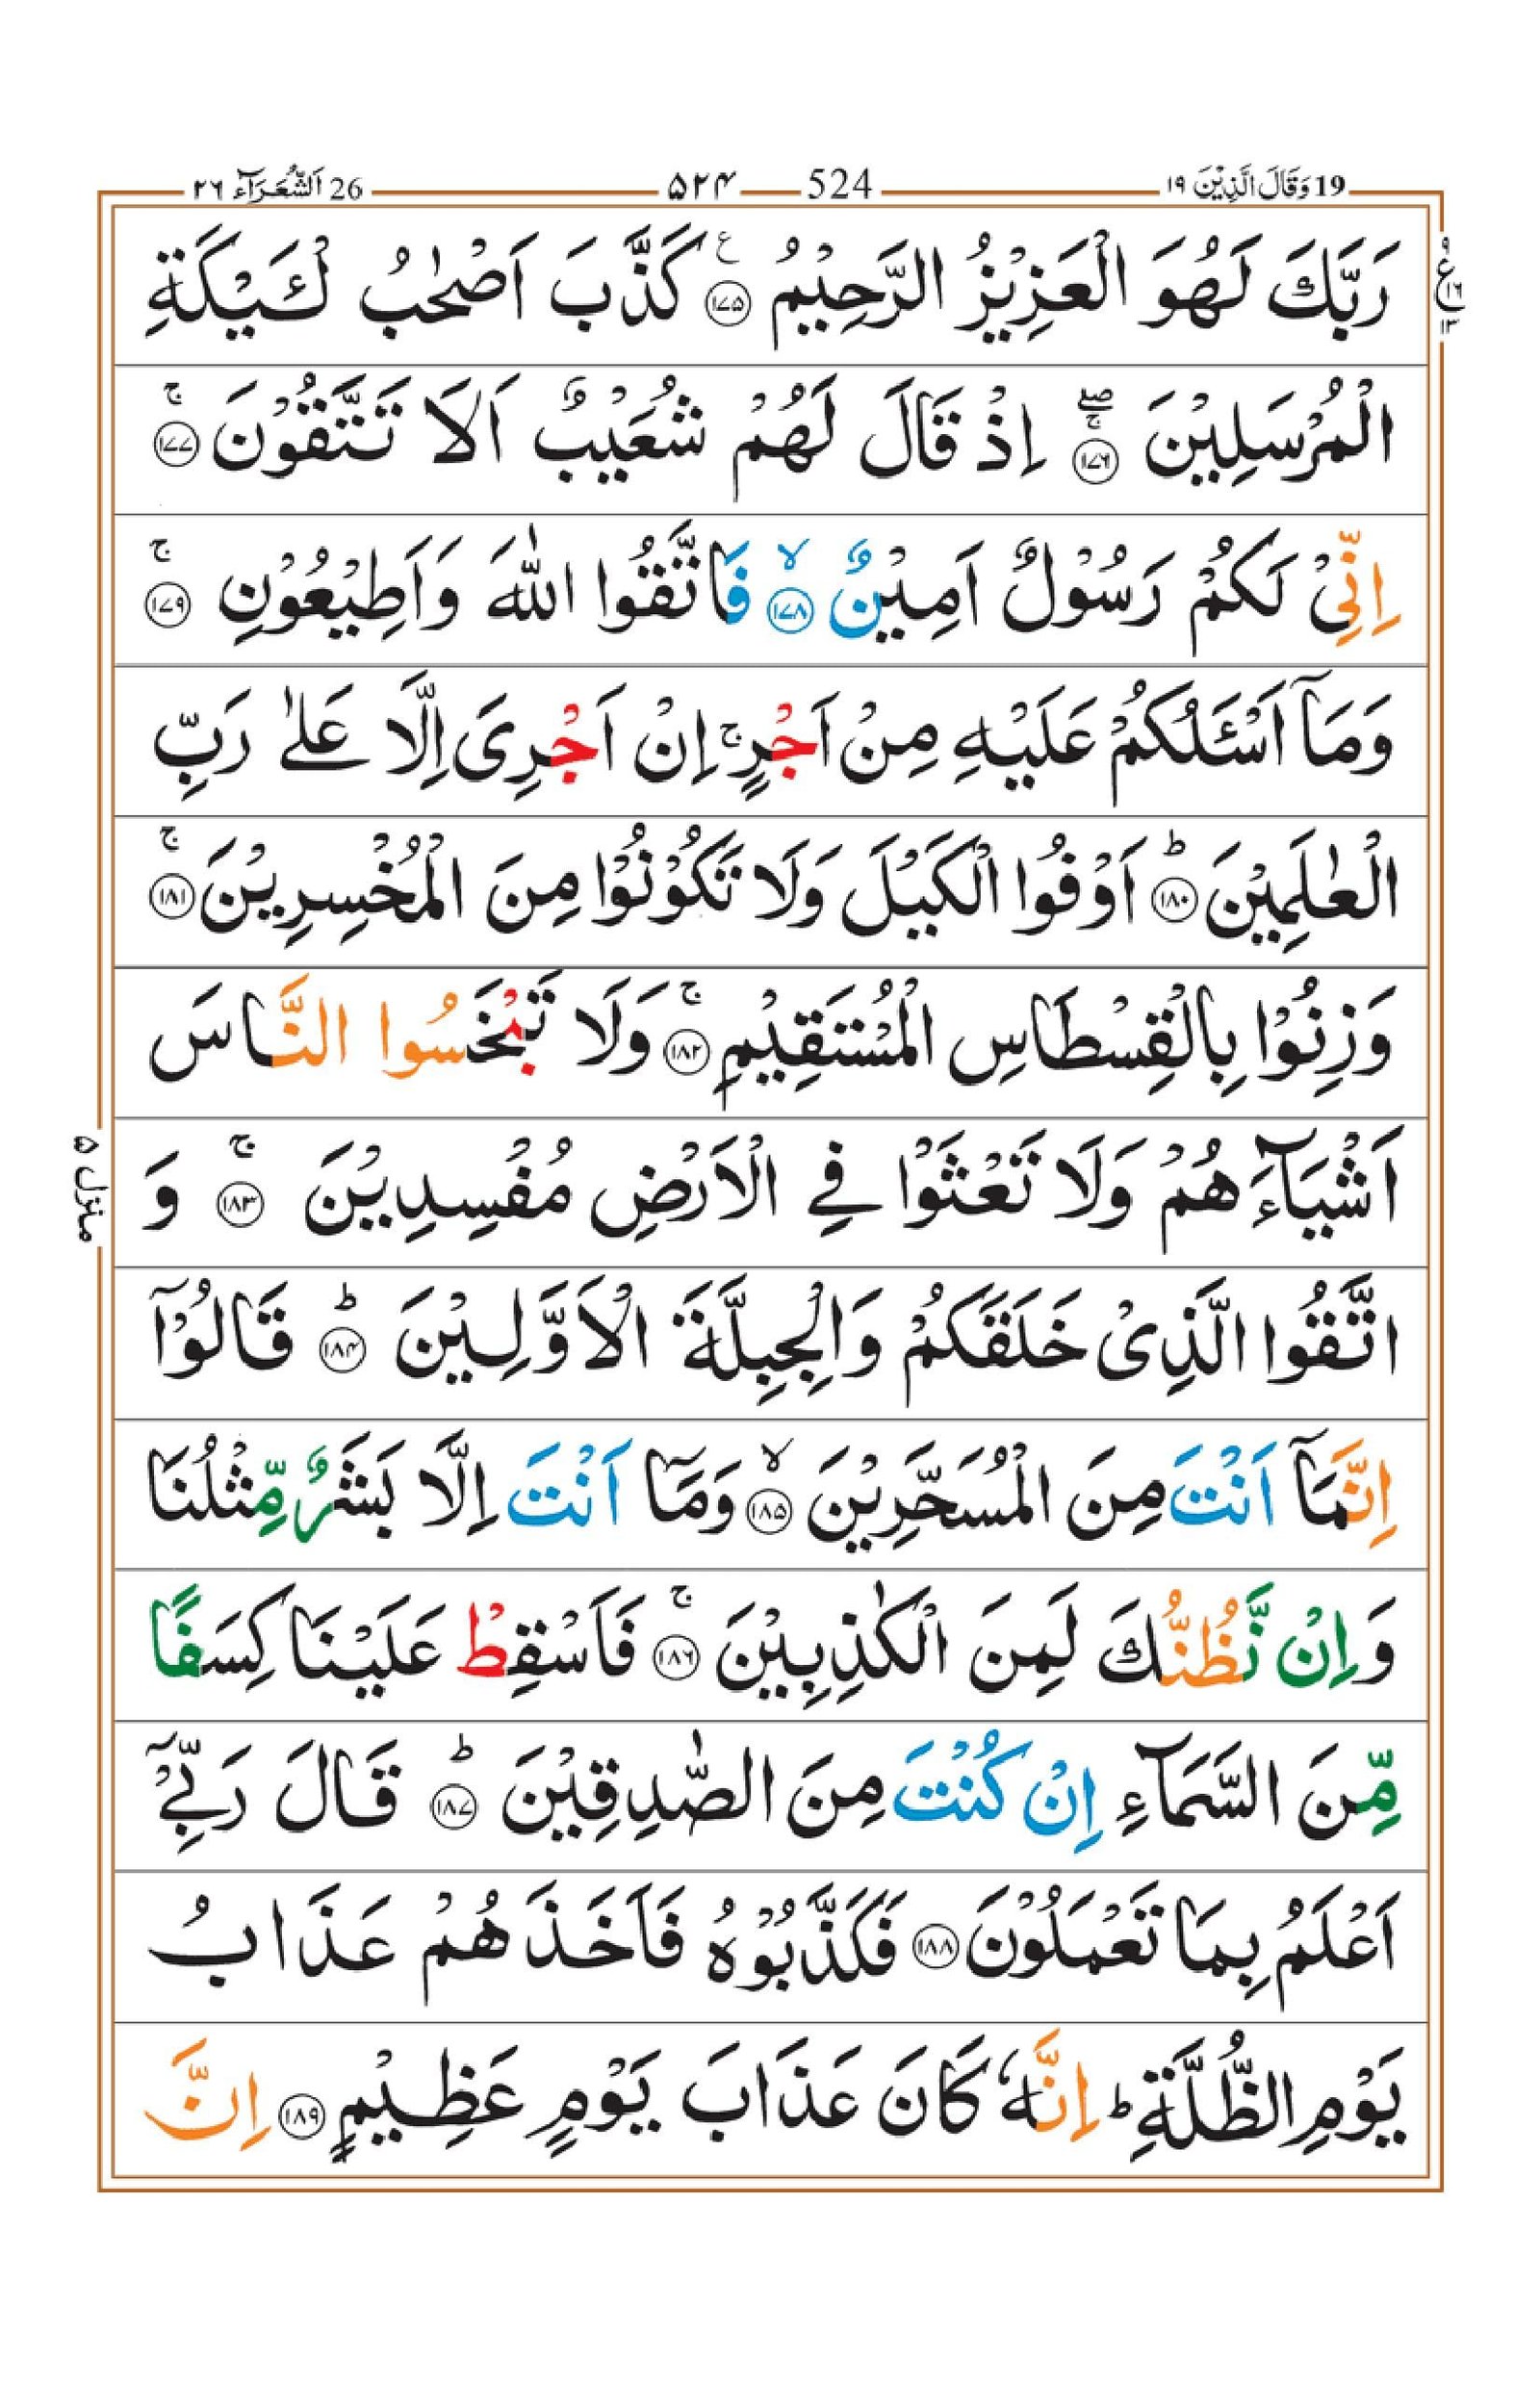 19 وَقَالَ الَّذِيْنَ ١٩ 524 ۵۲۴ 26 اَلشُّعَرَآء ٢٦
رَبَّكَ لَهُوَ الْعَزِيْزُ الرَّحِيْمُ ﴿۱۷۵﴾ ع كَذَّبَ اَصْحٰبُ لْئَيْكَةِ
ع ١٦ ١٣
الْمُرْسَلِيْنَ ﴿۱۷۶﴾ ۖۚ اِذْ قَالَ لَهُمْ شُعَيْبٌ اَلَا تَتَّقُوْنَ ﴿۱۷۷﴾ ۚ
اِنِّىْ لَكُمْ رَسُوْلٌ اَمِيْنٌ ﴿۱۷۸﴾ ۙ فَاتَّقُوا اللّٰهَ وَاَطِيْعُوْنِ ﴿۱۷۹﴾ ۚ
وَمَاۤ اَسْـَٔلُكُمْ عَلَيْهِ مِنْ اَجْرٍ ۚ اِنْ اَجْرِىَ اِلَّا عَلٰى رَبِّ
الْعٰلَمِيْنَ ﴿۱۸۰﴾ ؕ اَوْفُوا الْكَيْلَ وَلَا تَكُوْنُوْا مِنَ الْمُخْسِرِيْنَ ﴿۱۸۱﴾ ۚ
وَزِنُوْا بِالْقِسْطَاسِ الْمُسْتَقِيْمِ ﴿۱۸۲﴾ ۚ وَلَا تَبْخَسُوا النَّاسَ
اَشْيَآءَهُمْ وَلَا تَعْثَوْا فِى الْاَرْضِ مُفْسِدِيْنَ ﴿۱۸۳﴾ ۚ وَ
منزل ۵
اتَّقُوا الَّذِىْ خَلَقَكُمْ وَالْجِبِلَّةَ الْاَوَّلِيْنَ ﴿۱۸۴﴾ ؕ قَالُوْۤا
اِنَّمَاۤ اَنْتَ مِنَ الْمُسَحَّرِيْنَ ﴿۱۸۵﴾ ۙ وَمَاۤ اَنْتَ اِلَّا بَشَرٌ مِّثْلُنَا
وَاِنْ نَّظُنُّكَ لَمِنَ الْكٰذِبِيْنَ ﴿۱۸۶﴾ ۚ فَاَسْقِطْ عَلَيْنَا كِسَفًا
مِّنَ السَّمَآءِ اِنْ كُنْتَ مِنَ الصّٰدِقِيْنَ ﴿۱۸۷﴾ ؕ قَالَ رَبِّىْۤ
اَعْلَمُ بِمَا تَعْمَلُوْنَ ﴿۱۸۸﴾ فَكَذَّبُوْهُ فَاَخَذَهُمْ عَذَابُ
يَوْمِ الظُّلَّةِ ؕ اِنَّهٗ كَانَ عَذَابَ يَوْمٍ عَظِيْمٍ ﴿۱۸۹﴾ اِنَّ